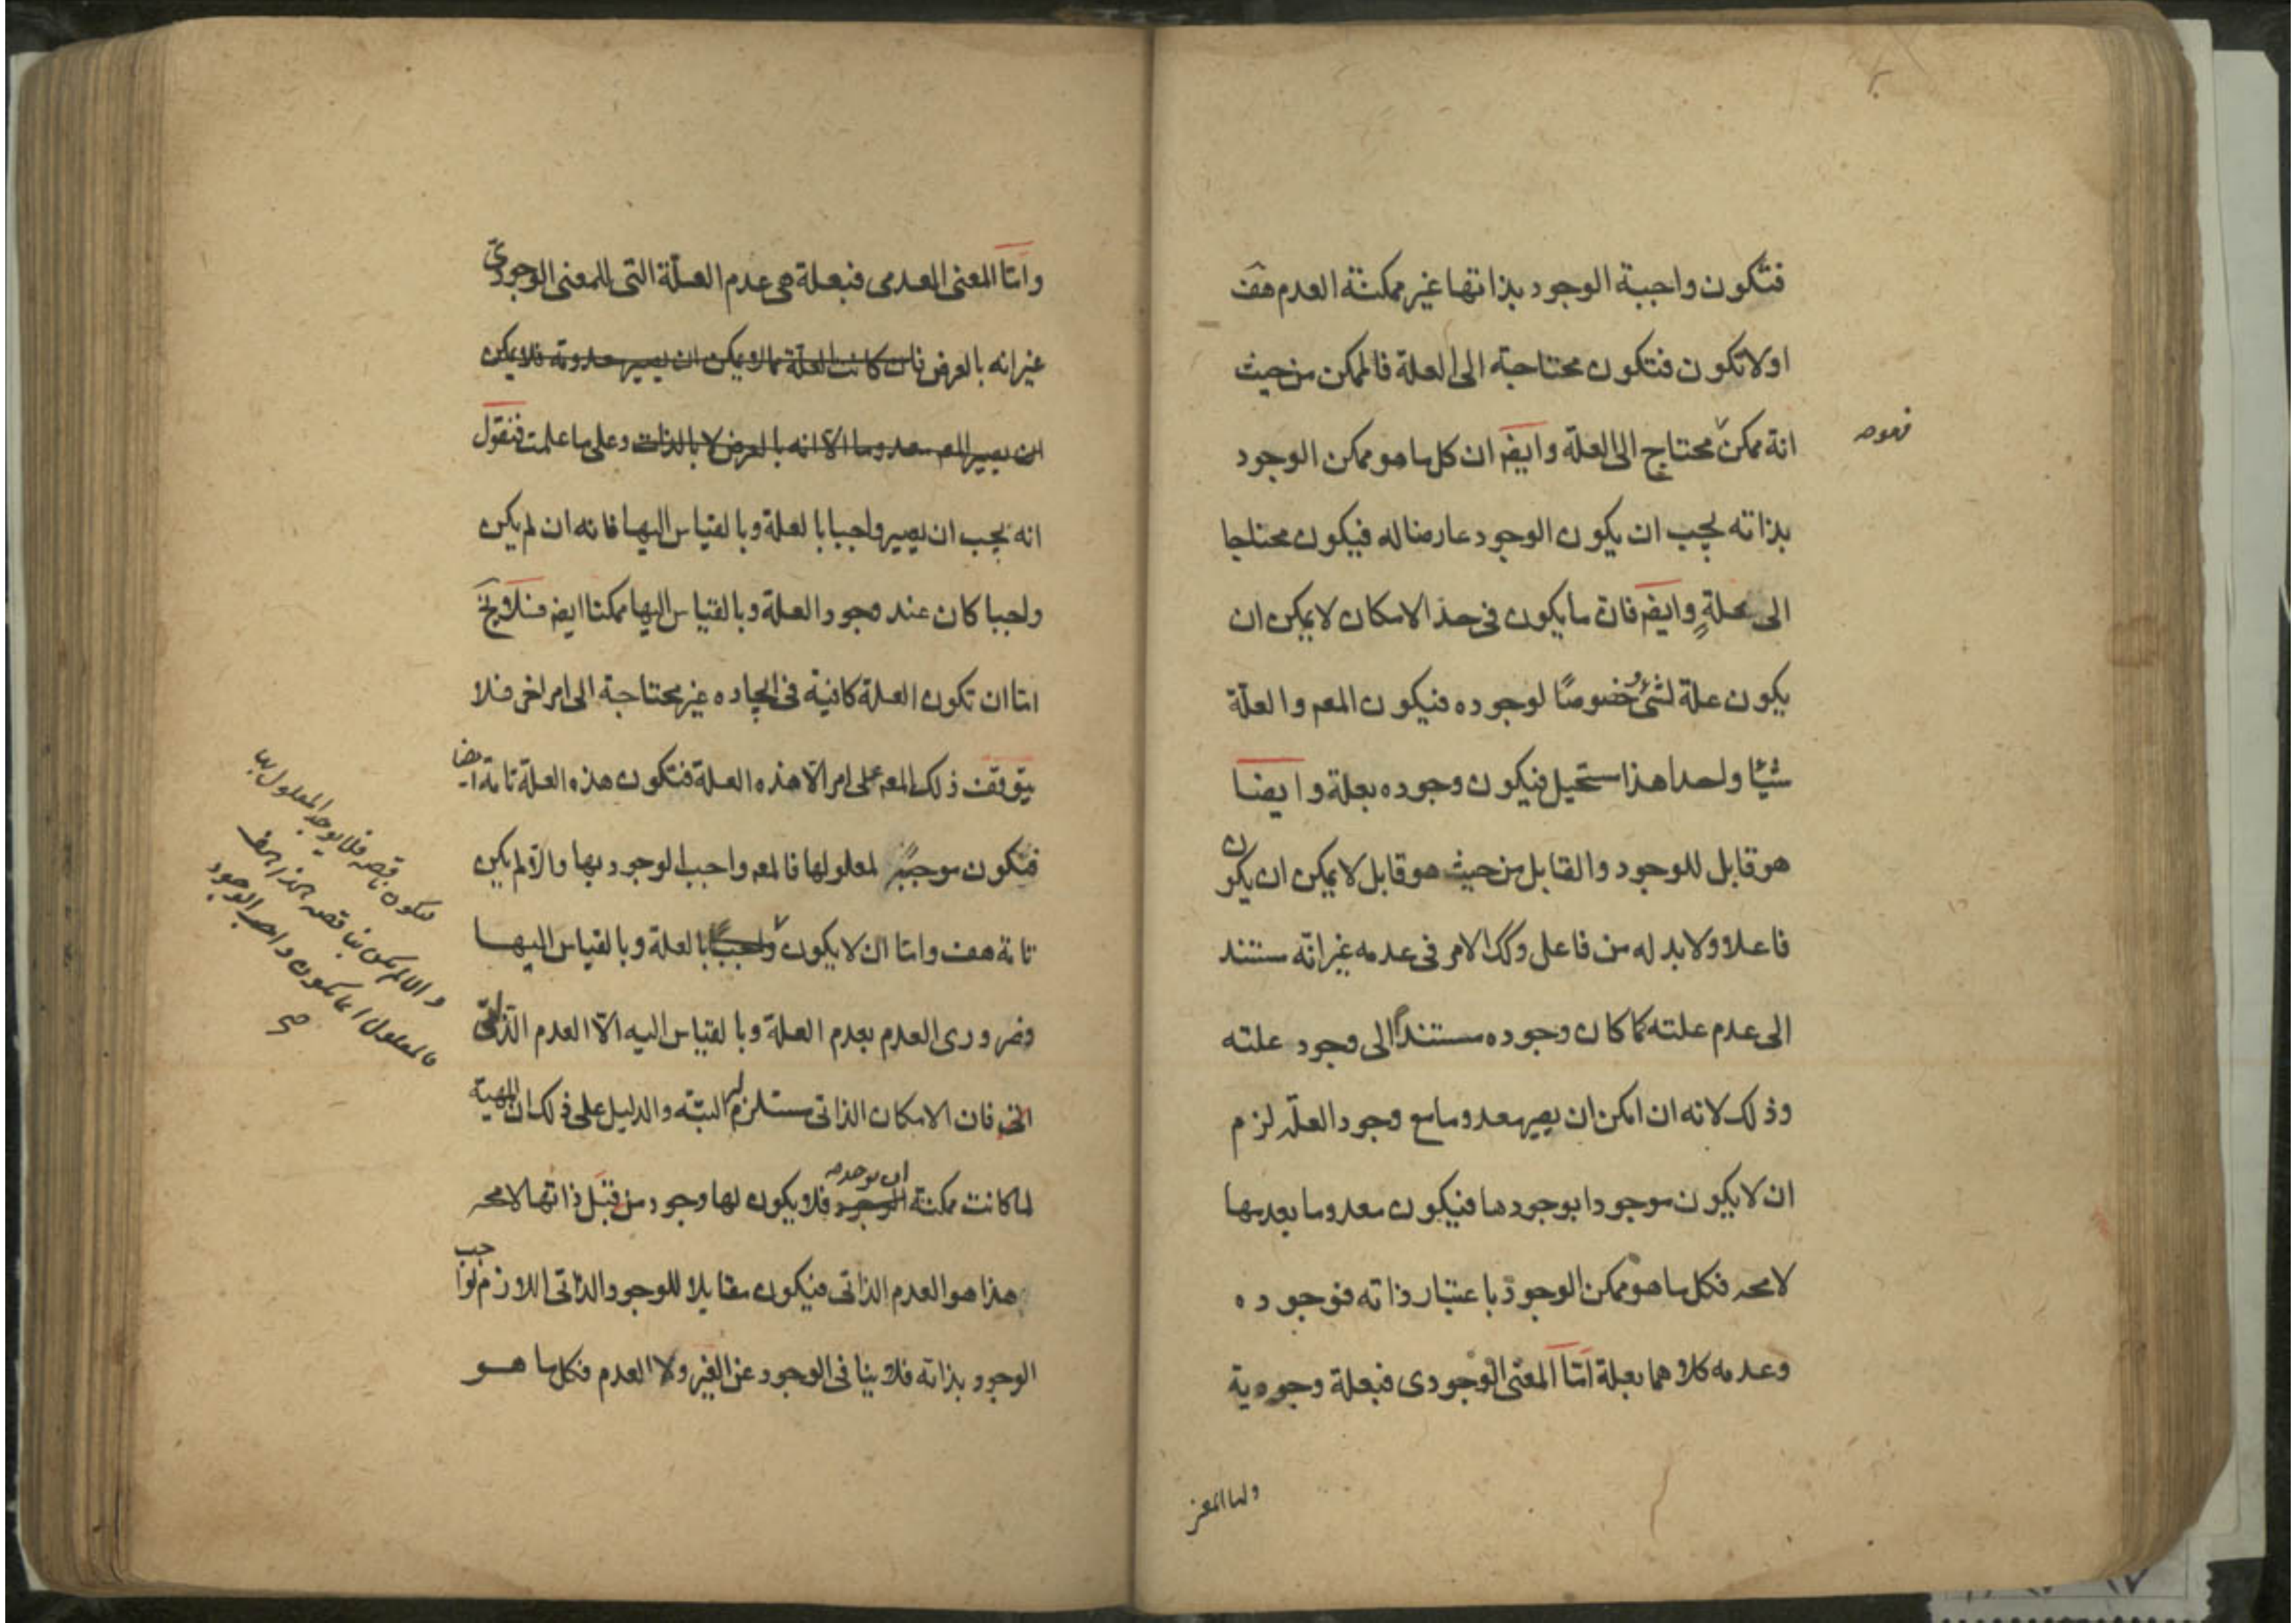 فتكون واجبة الوجود بذاتها غير ممكنة العدم هف
او لا تكون فتكون محتاجة الى العلة فالممكن من حيث
انه ممكن محتاج الى العلة وايضا ان كل ما هو ممكن الوجود
بذاته يجب ان يكون الوجود عارضا له فيكون محتاجا
الى علةٍ وايضا فان ما يكون فى حد الامكان لا يمكن ان
يكون علة لشئ خصوصًا لوجوده فيكون المعم والعلّة
شيئا واحدا هذا مستحيل فيكون وجوده بعلة وايضا
هو قابل للوجود والقابل من حيث هو قابل لا يمكن ان يكون
فاعلا ولا بد له من فاعل وكك الامر فى عدمه غير انّه مستند
الى عدم علته كما كان وجوده مستنداً الى وجود علته
وذلك لانه ان امكن ان يصير معدوما مع وجود العلّة لزم
ان لا يكون موجودا بوجودها فيكون معدوما بعدمها
لا محه فكل ما هو ممكن الوجود باعتبار ذاته فوجوده
وعدمه كلاهما بعلة امّا المعنى الوجودى فبعلة وجودية
واما المعنى
وامّا المعنى العدمى فبعلة هى عدم العلّة التى للمعنى الوجودىّ
غير انه بالعرض فان كانت العلّة مما لا يمكن ان يصير معدومة فلا يمكن
ان يصير المعم معدوما الّا انه بالعرض لا بالذات وعلى ما علمت فنقول
انه يجب ان يصير واجبا بالعلة وبالقياس اليها فانه ان لم يكن
واجبا كان عند وجود العلة وبالقياس اليها ممكنا ايضا فلا يخ
امّا ان تكون العلة كافية فى ايجاده غير محتاجة الى امر اخر فلا
يتوقف ذلك المعم على امر الّا هذه العلة فتكون هذه العلة تامة ايضا
فتكون موجبة لمعلولها فالمعم واجب الوجود بها والّا لم يكن
تامة هف وامّا ان لا يكون واجبًا بالعلة وبالقياس اليها
فتكون ناقصه فلا يوجد المعلول بها
والا لم يكن ناقصه هذا خلف
فالمعلول انما يكون واجب الوجود
صح
وضرورى العدم بعدم العلة وبالقياس اليه الّا العدم الذّاتىّ
فان الامكان الذاتى مستلزم له البتّه والدليل على ذلك ان المهية
لما كانت ممكنة الوجود فلا يكون لها وجود من قبل ذاتها لا محه
هذا هو العدم الذاتى فيكون مقابلا للوجود الذاتى اللازم لواجب
الوجود بذاته فلا ينافى الوجود عن الغير ولا العدم فكل ما هو